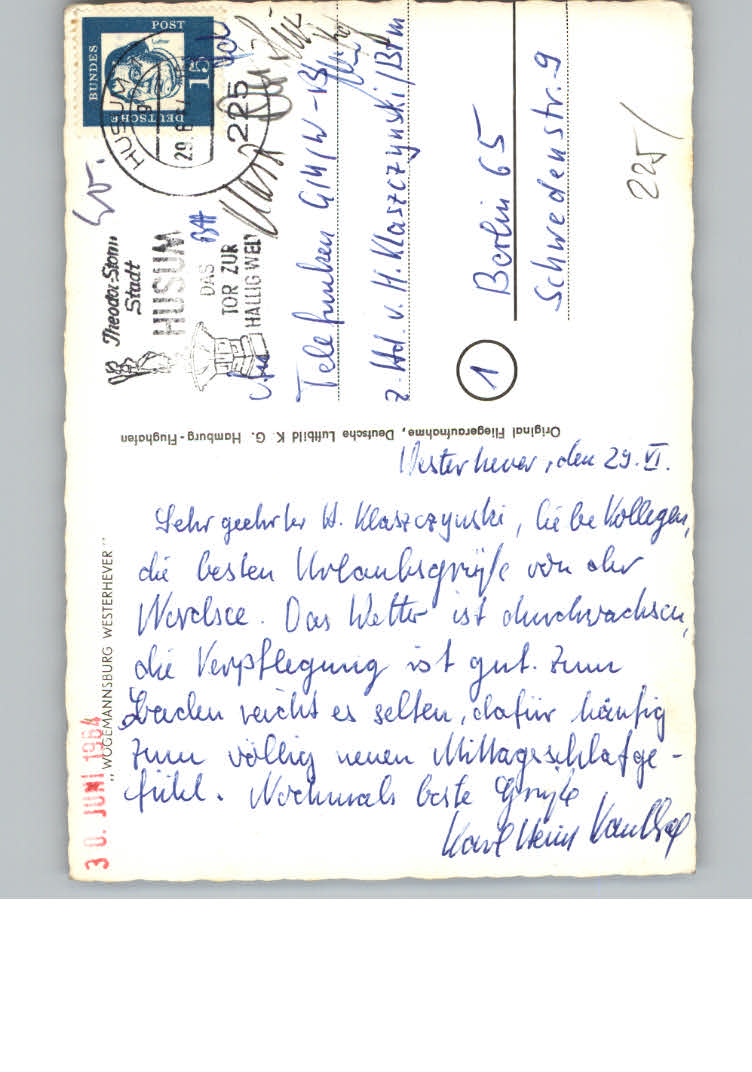 Westerhever, den 29. VI.
Sehr geehrter H. Klaszczynski, liebe Kollegen,
die besten Urlaubsgrüße von der
Nordsee. Das Wetter ist durchwachsen,
die Verpflegung ist gut. Zum
Baden reicht es selten, dafür häufig
zum völlig neuen Mittagsschlafge-
fühl. Nochmals beste Grüße
Karl Heinz
„WOGEMANNSBURG WESTERHEVER"
30. JUNI 1964
Original Fliegeraufnahme, Deutsche Luftbild K. G. Hamburg-Flughafen
DEUTSCHE
BUNDES
POST
Luther
15
HUSUM
29. 6.
225
Theodor-Storm
Stadt
HUSUM
DAS
TOR ZUR
HALLIGWELT
Telefunken
z. Hd. v. H. Klaszczynski/Btm
1
Berlin 65
Schwedenstr. 9
225/